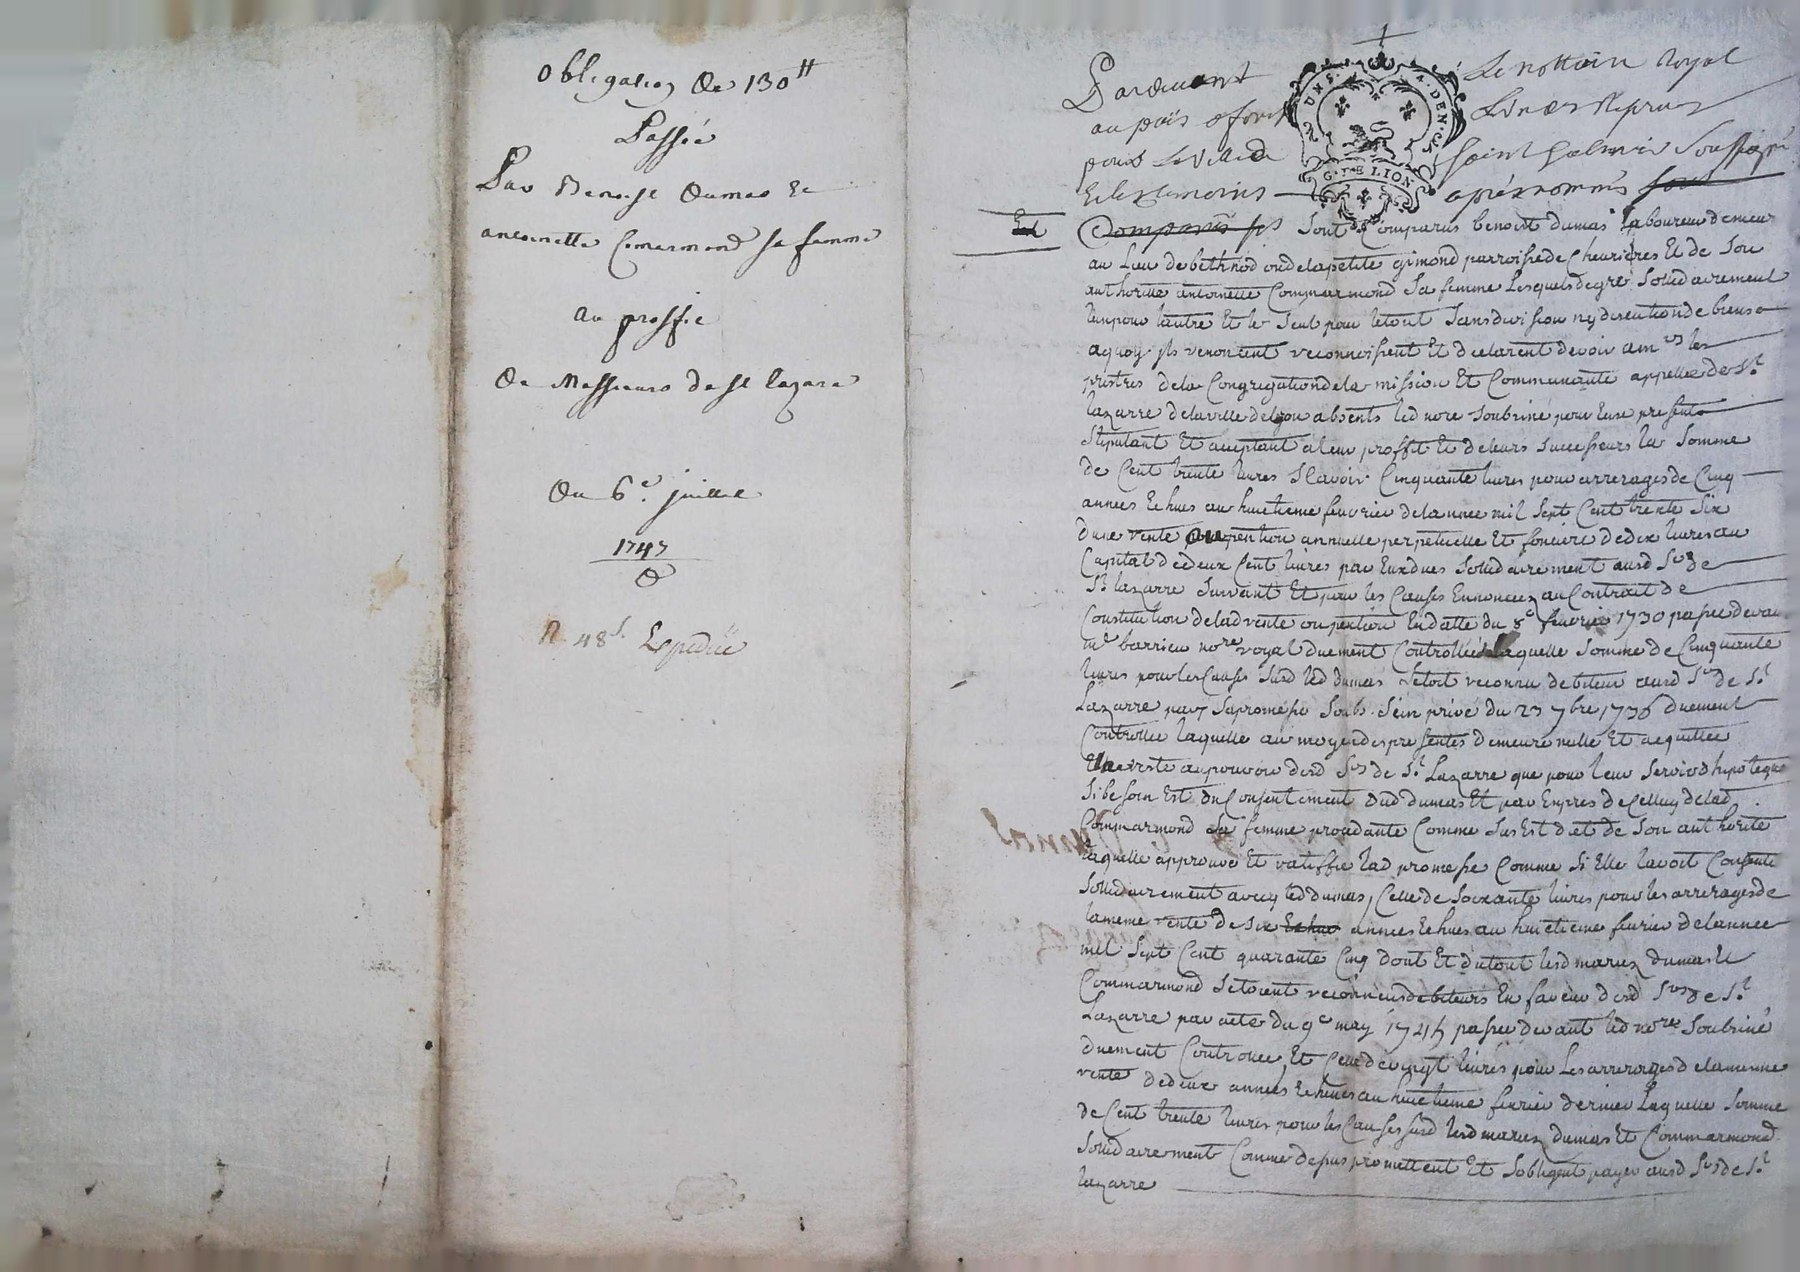 obligation de 130 tt
Passée
Par Benoist dumas Et
antoinette Comarmond sa femme
au proffit
De Messieurs de st lazare
Du 6e. juillet
1747
n 48 Expediée
Pardevant Le nottaire Royal
au païs de forests
pour La ville de Saint Galmier Soussigné
Et les temoins aprés nommés
UN S. A. DEN.
G. DE LION
Comparus ps Sont Comparus benoist dumas laboureur demeur
au Lieu de bethnod ou de la petite gimond parroisse de Chevrières Et de Son
authorité antoinette Commarmond Sa femme Lesquels de gré Sollidairement
lun pour lautre Et le Seul pour le tout Sans division ny discution de biens
a quoy ils renoncent reconnoissent Et declarent devoir a mrs les
prestres de la Congregation de la mission Et Communauté appellée de St
lazarre de la ville de lyon absents led nore Soubsiné pour Eux present
Stipulant Et acceptant a leur proffit Et de leurs Successeurs la Somme
de Cent trente livres Scavoir Cinquante livres pour arrerages de Cinq
années Echues au huitieme fevrier de lannee mil Sept Cent trente Six
dune rente ou pention annuelle perpetuelle Et fonciere de dix livres au
Capital de deux Cent livres par Eux dues Sollidairement ausd Srs de
St lazarre Suivant Et pour les Causes Ennoncees au Contrait de
Constitution de lad rente ou pention En datte du 8e fevrier 1730 passé devant
me barrieu nore royal duement Controllée laquelle Somme de Cinquante
livres pour les Causes Susd led dumas Setoit reconnu debiteur ausd Srs de St
Lazarre par Sa promesse Soubs Sein privé du 23 7bre 1736 duement
Controllée laquelle au moyen des presentes demeure nulle Et acquittée
Et ne reste au pouvoir desd Srs de St Lazarre que pour leur Servir dhipoteque
Si besoin Est du Consentement dud dumas Et par Exprès de Celluy de lad
Commarmond Sa femme procedante Comme Sus Est dit de Son authorité
laquelle approuve Et ratiffie lad promesse Comme Si Elle lavoit Consentie
Sollidairement avec led dumas, Celle de Soixante livres pour les arrerages de
la meme rente de Six Echue années Echues au huitieme fevrier de lannee
mil Sept Cent quarante Cinq dont Et du tout lesd mariez dumas Et
Commarmond Setoient reconnus debiteurs En faveur desd Srs de St
Lazarre par acte du 9e may 1745 passé devant led nore Soubsiné
duement Controllée, Et Celle de vingt livres pour Les arrerages de la meme
rente de deux années Echues au huitieme fevrier dernier Laquelle Somme
de Cent trente livres pour les Causes Susd lesd mariez dumas Et Commarmond
Sollidairement Comme dessus promettent Et Sobligent payer ausd Srs de St
lazarre